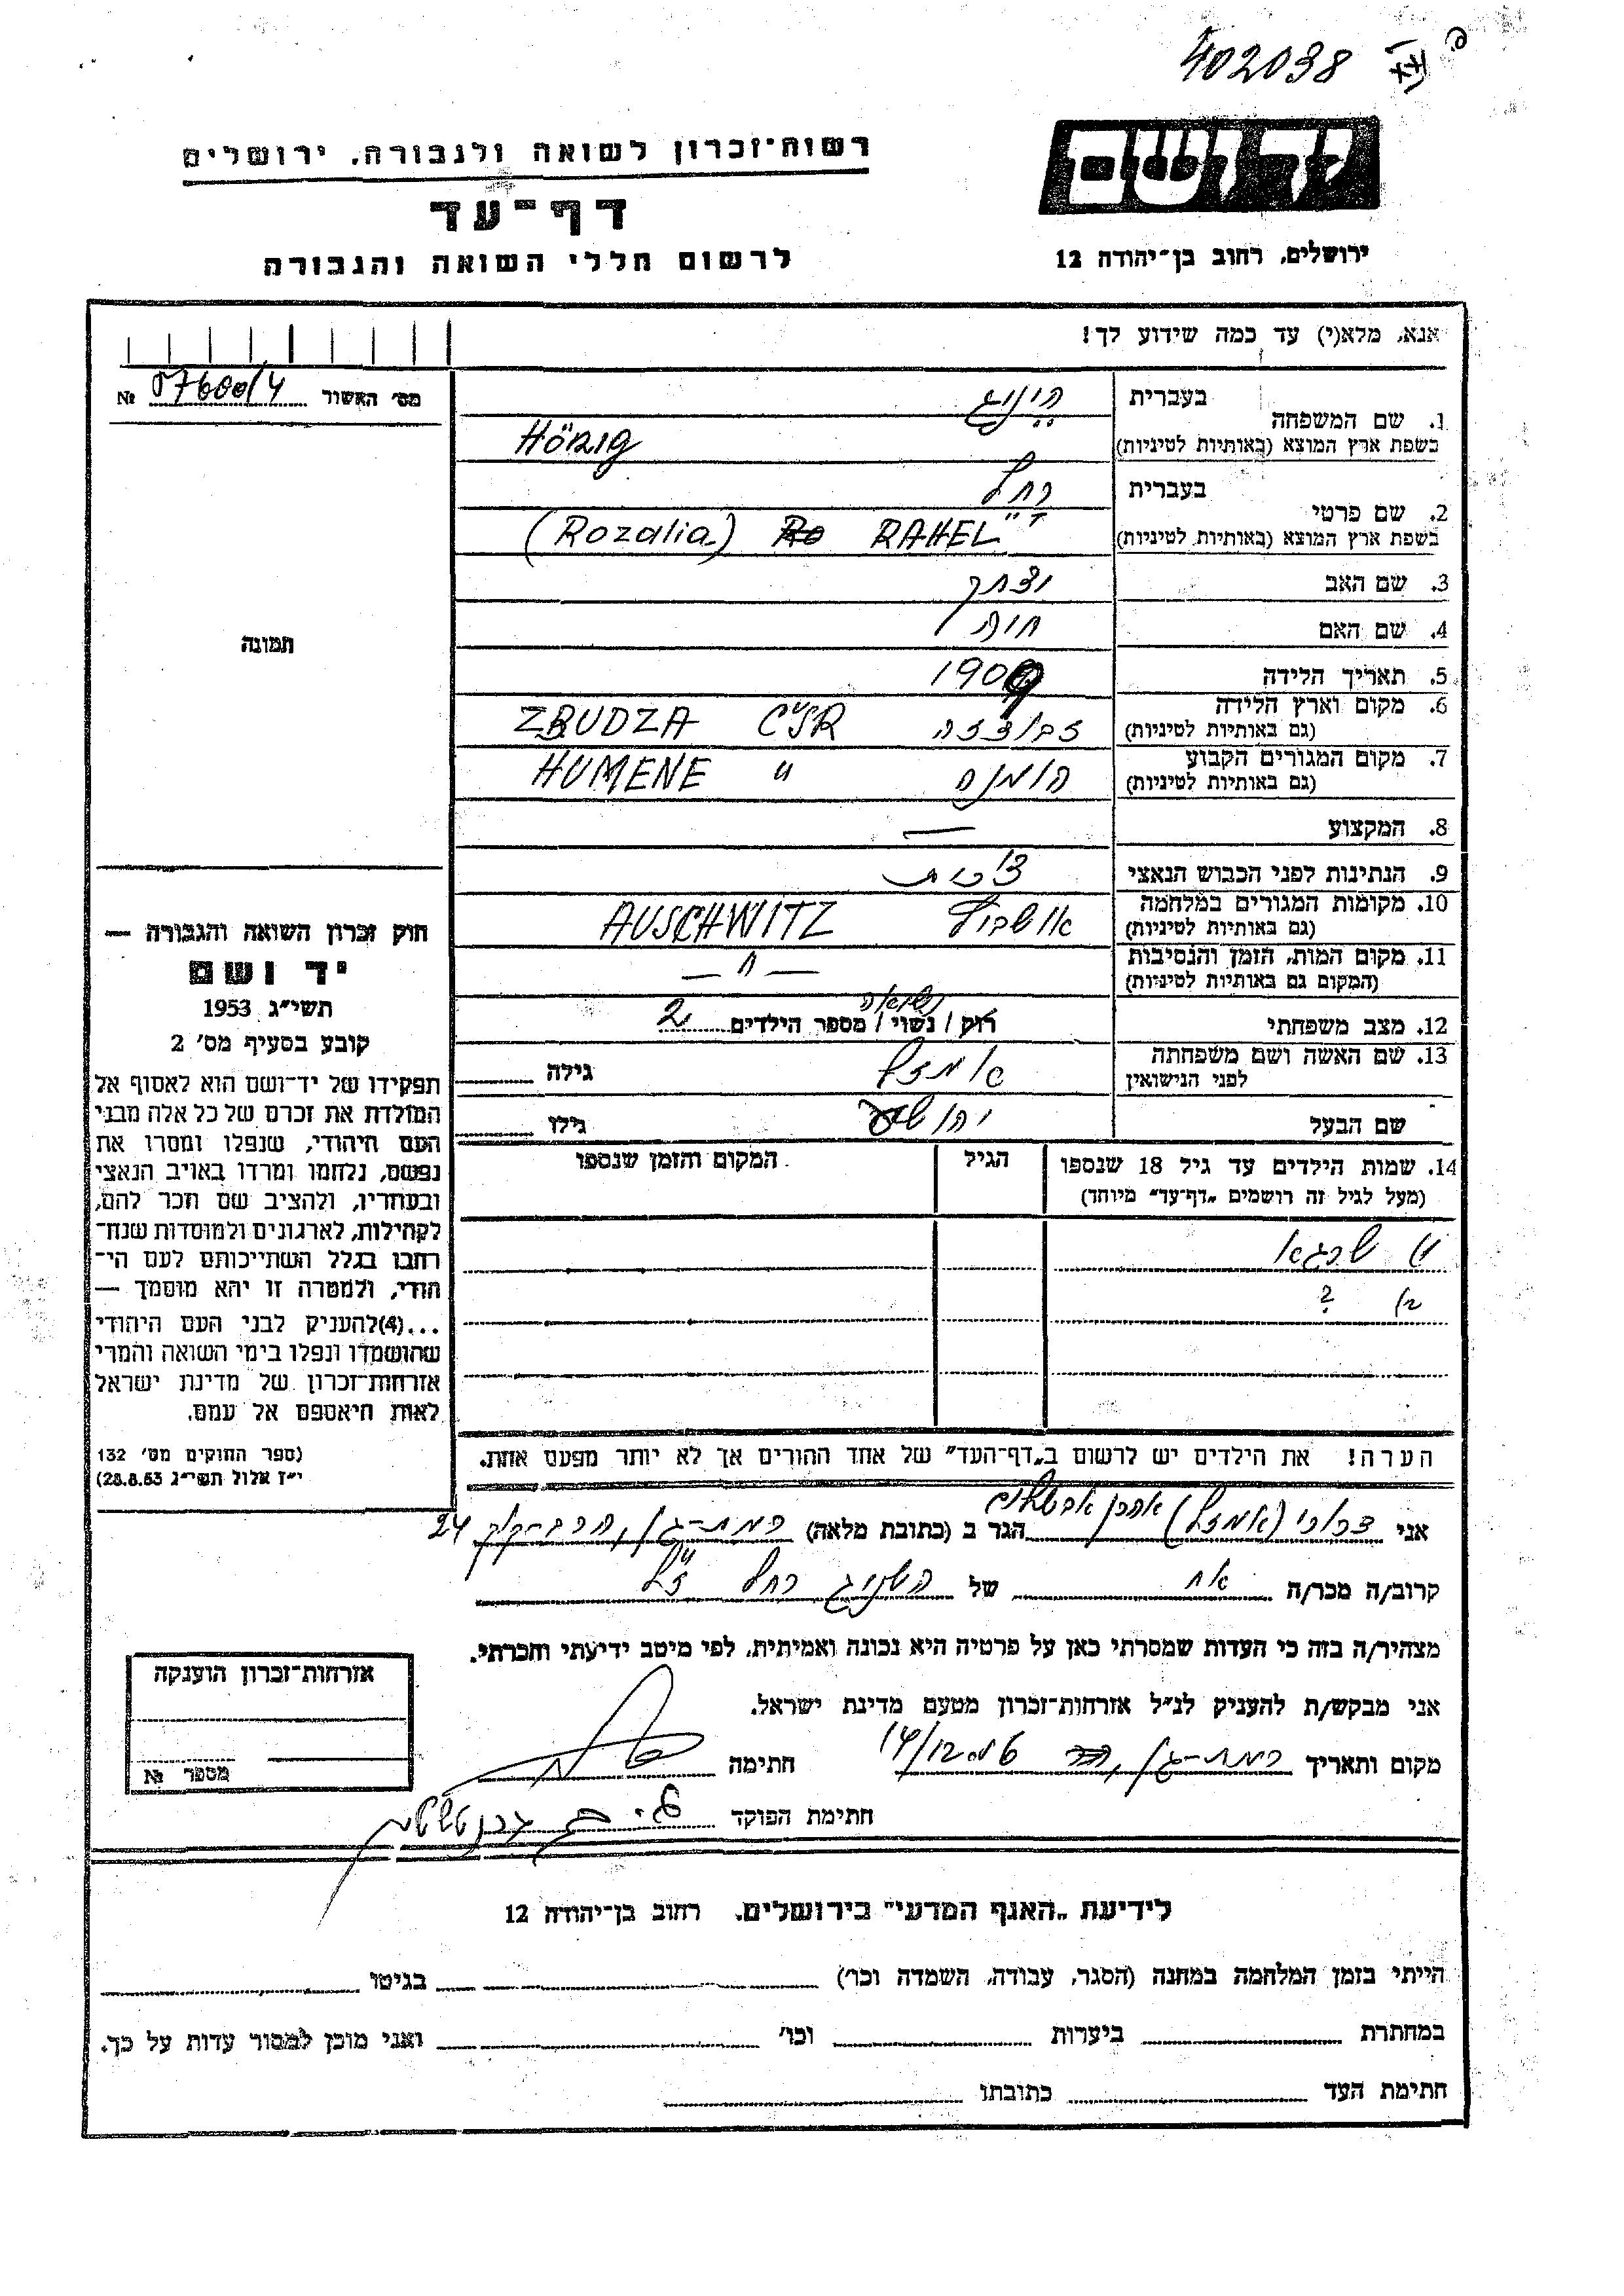 402038
רשות־זכרון לשואה ולגבורה, ירושלים
דף־עד
לרשום חללי השואה והגבורה
יד ושם
ירושלים, רחוב בן־יהודה 12
אנא, מלא(י) עד כמה שידוע לך!
מס׳ האשור № 07600/4
תמונה
1. שם המשפחה
בעברית
בשפת ארץ המוצא (באותיות לטיניות) Hönig
2. שם פרטי
בעברית רחל
בשפת ארץ המוצא (באותיות לטיניות) RAHEL (Rozalia)
3. שם האב יצחק
4. שם האם חיה
5. תאריך הלידה 1909
6. מקום וארץ הלידה
(גם באותיות לטיניות) ZBUDZA ČSR
7. מקום המגורים הקבוע
(גם באותיות לטיניות) הומנה HUMENE "
8. המקצוע —
9. הנתינות לפני הכבוש הנאצי
10. מקומות המגורים במלחמה
(גם באותיות לטיניות) AUSCHWITZ
11. מקום המות, הזמן והנסיבות
(המקום גם באותיות לטיניות) — " —
12. מצב משפחתי רווק / נשוי / מספר הילדים 2
נשואה
13. שם האשה ושם משפחתה
לפני הנישואין גילה
שם הבעל יהושע גילו
14. שמות הילדים עד גיל 18 שנספו
(מעל לגיל זה רושמים „דף־עד״ מיוחד)
הגיל
המקום והזמן שנספו
שרגא
?
הערה! את הילדים יש לרשום ב„דף־העד״ של אחד ההורים אך לא יותר מפעם אחת.
חוק זכרון השואה והגבורה —
יד ושם
תשי״ג 1953
קובע בסעיף מס׳ 2
תפקידו של יד־ושם הוא לאסוף אל
המולדת את זכרם של כל אלה מבני
העם היהודי, שנפלו ומסרו את
נפשם, נלחמו ומרדו באויב הנאצי
ובעוזריו, ולהציב שם וזכר להם,
לקהילות, לארגונים ולמוסדות שנח־
רבו בגלל השתייכותם לעם הי־
הודי, ולמטרה זו יהא מוסמך —
...(4)להעניק לבני העם היהודי
שהושמדו ונפלו בימי השואה והמרי
אזרחות־זכרון של מדינת ישראל
לאות היאספם אל עמם.
(ספר החוקים מס׳ 132
י״ז אלול תשי״ג 28.8.53)
אני הגר ב (כתובת מלאה) רמת־גן, 24
קרוב/ה מכר/ה אח של רחל ז״ל
מצהיר/ה בזה כי העדות שמסרתי כאן על פרטיה היא נכונה ואמיתית, לפי מיטב ידיעתי והכרתי.
אני מבקש/ת להעניק לנ״ל אזרחות־זכרון מטעם מדינת ישראל.
מקום ותאריך רמת־גן, חתימה
חתימת הפוקד
אזרחות־זכרון הוענקה
מספר №
לידיעת „האגף המדעי״ בירושלים, רחוב בן־יהודה 12
הייתי בזמן המלחמה במחנה (הסגר, עבודה, השמדה וכו׳) בגיטו
במחתרת ביערות וכו׳ ואני מוכן למסור עדות על כך.
חתימת העד כתובתו